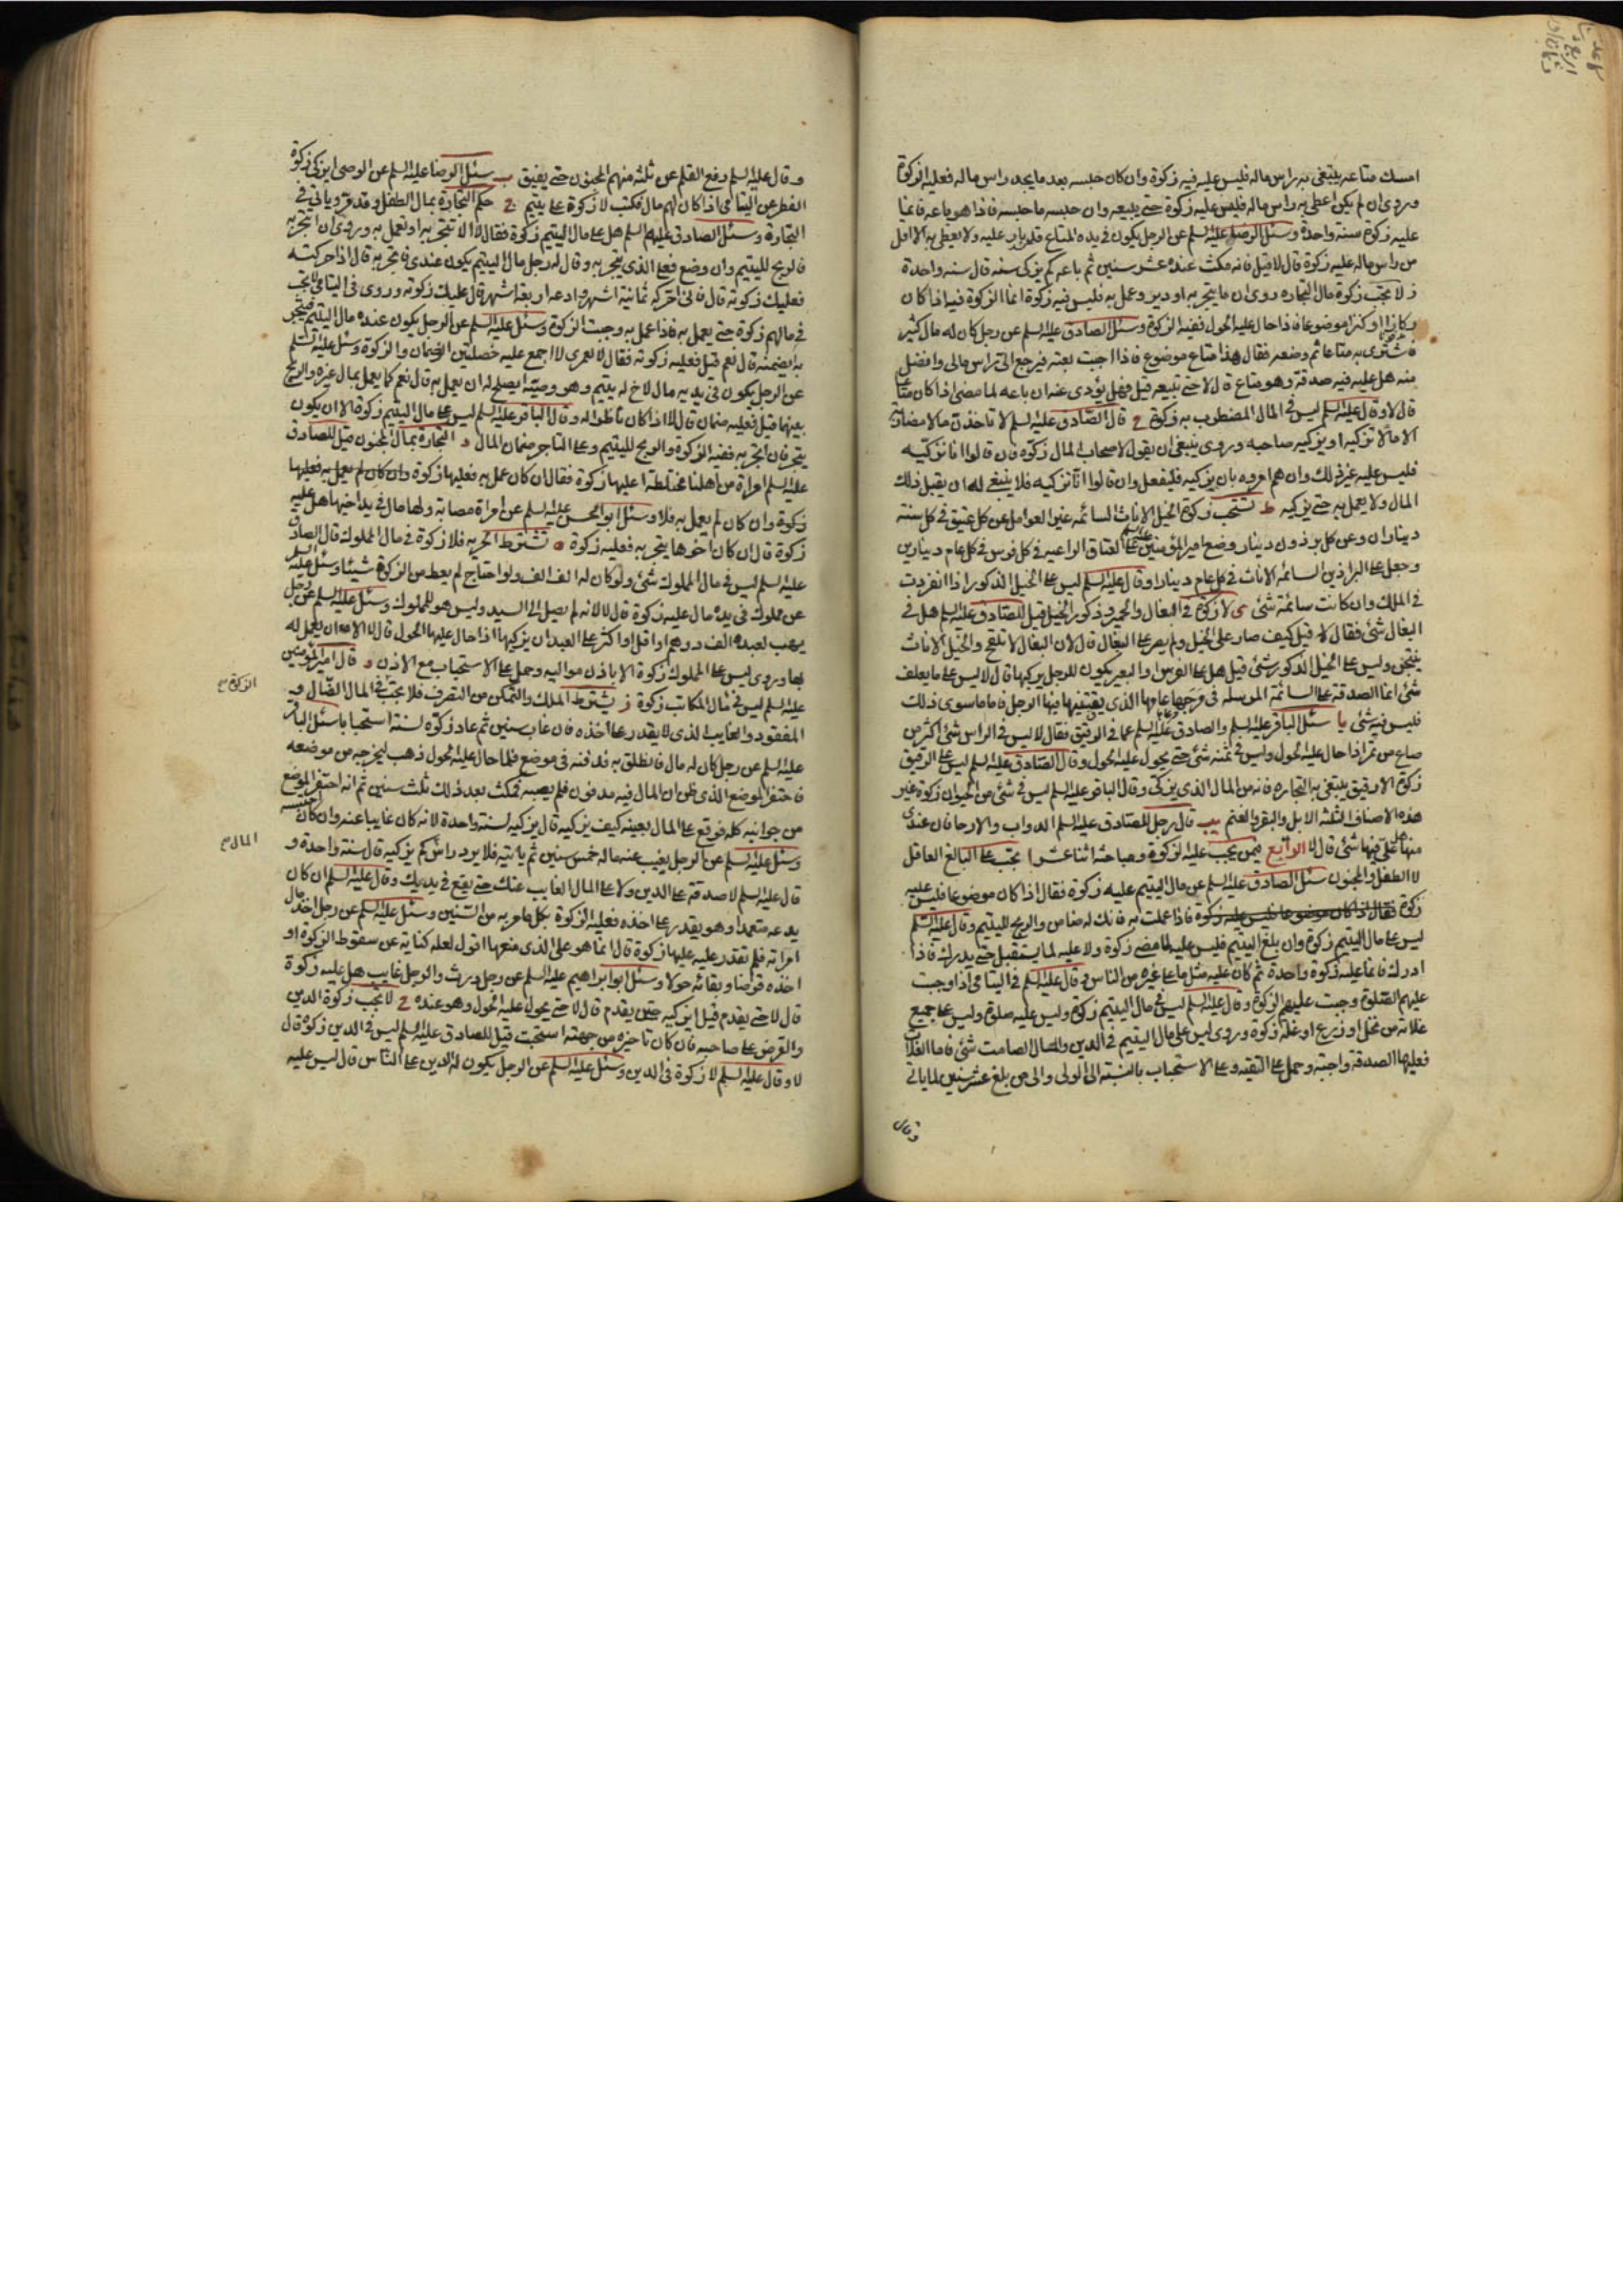 امسك متاعه يبتغي به راس ماله فليس عليه فيه زكوة وان كان حبسه بعد ما يجد راس ماله فعليه الزكوة
وروى ان لم يكن اعطى به راس ماله فليس عليه زكوة حتى يبيعه وان حبسه ما حبسه فاذا هو باعه فانما
عليه زكوة سنة واحدة وسئل الرضا عليه السلم عن الرجل يكون في يده المتاع قد بار عليه ولا يعطى به الا اقل
من راس ماله عليه زكوة قال لا قيل فانه مكث عنده عشر سنين ثم باعه كم يزكى سنه قال سنه واحدة
ز لا تجب زكوة مال التجاره روى ان ما يتجر به او دير وعمل به فليس فيه زكوة انما الزكوة فيه اذا كان
ركازا او كنزا موضوعا فاذا حال عليه الحول ففيه الزكوة وسئل الصادق عليه السلم عن رجل كان له مال كثير
فاشترى به متاعا ثم وضعه فقال هذا متاع موضوع فاذا احببت بعته فيرجع الى راس مالى وافضل
منه هل عليه فيه صدقة وهو متاع قال لا حتى تبيعه قيل فهل يؤدى عنه ان باعه لما مضى اذا كان متاعا
قال لا وقال عليه السلم ليس في المال المضطرب به زكوة ح قال الصادق عليه السلم لا تاخذن مالا مضاربة
الا مالا تزكيه او يزكيه صاحبه وروى ينبغى ان يقول لاصحاب المال زكوه فان قالوا انا نزكيه
فليس عليه غير ذلك وان هم امروه بان يزكيه فليفعل وان قالوا انا نزكيه فلا ينبغى له ان يقبل ذلك
المال ولا يعمل به حتى يزكيه ط تستحب زكوة الخيل الاناث السائمه غير العوامل عن كل عتيق في كل سنة
ديناران وعن كل برذون دينار وضع امير المؤمنين عليه السلم على العتاق الراعيه في كل فرس في كل عام دينارين
وجعل على البراذين السائمه الاناث في كل عام دينارا وقال عليه السلم ليس على الخيل الذكور اذا انفردت
في الملك وان كانت سائمة شئ ى لا زكوة في البغال والحمير وذكور الخيل قيل للصادق عليه السلم هل في
البغال شئ فقال لا قيل كيف صار على الخيل ولم يصر على البغال قال لان البغال لا تلقح والخيل الاناث
ينتجن وليس على الخيل الذكور شئ قيل هل على الفرس او البعير يكون للرجل يركبها قال لا ليس على ما يعلف
شئ انما الصدقة على السائمة المرسله في مرجها عامها الذى يقتنيها فيها الرجل فاما ما سوى ذلك
فليس فيه شئ يا سئل الباقر عليه السلم والصادق عليه السلم عما في الرقيق فقال لا ليس في الراس شئ اكثر من
صاع من تمر اذا حال عليه الحول وليس في ثمنه شئ حتى يحول عليه الحول وقال الصادق عليه السلم ليس على الرقيق
زكوة الا رقيق يبتغى به التجاره فانه من المال الذى يزكى وقال الباقر عليه السلم ليس في شئ من الحيوان زكوة غير
هذه الاصناف الثلثة الابل والبقر والغنم يب قال رجل للصادق عليه السلم الدواب والارحا فان عندى
منها على فيها شئ قال لا الرابع فيمن يجب عليه الزكوة ومباحثه اثنا عشر ا تجب على البالغ العاقل
لا الطفل والمجنون سئل الصادق عليه السلم عن مال اليتيم عليه زكوة فقال اذا كان موضوعا فليس عليه
زكوة فقال اذا كان موضوعا فليس عليه زكوة فاذا عملت به فانك له ضامن والربح لليتيم وقال عليه السلم
ليس على مال اليتيم زكوة وان بلغ اليتيم فليس عليه لما مضى زكوة ولا عليه لما يستقبل حتى يدرك فاذا
ادرك فانما عليه زكوة واحدة ثم كان عليه مثل ما على غيره من الناس وقال عليه السلم في اليتامى اذا وجبت
عليهم الصلوة وجبت عليهم الزكوة وقال عليه السلم ليس في مال اليتيم زكوة وليس عليه صلوة وليس على جميع
غلاته من نخل او زرع او غلة زكوة وروى ليس على مال اليتيم في الدين والمال الصامت شئ فاما الغلات
فعليها الصدقة واجبة وحمل على التقيه وعلى الاستحباب بالنسبة الى الولى والى من بلغ عشر سنين لما ياتى
وقال
وقال عليه السلم رفع القلم عن ثلثه منهم المجنون حتى يفيق ب سئل الرضا عليه السلم عن الوصى ايزكى زكوة
الفطر عن اليتامى اذا كان لهم مال فكتب لا زكوة على يتيم ج حكم التجارة بمال الطفل وقد مر وياتى في
التجارة وسئل الصادق عليه السلم هل على مال اليتيم زكوة فقال لا الا ان تتجر به او تعمل به وروى ان اتجر به
فالربح لليتيم وان وضع فعلى الذى يتجر به وقال له رجل مال اليتيم يكون عندى فاتجر به قال اذا حركته
فعليك زكوته قال فانى احركه ثمانية اشهر وادعه اربعة اشهر قال عليك زكوته وروى في اليتامى لا تجب
في مالهم زكوة حتى يعمل به فاذا عمل به وجبت الزكوة وسئل عليه السلم عن الرجل يكون عنده مال اليتيم فيتجر
به ايضمنه قال نعم قيل فعليه زكوته فقال لا لعمرى لا اجمع عليه خصلتين الضمان والزكوة وسئل عليه السلم
عن الرجل يكون في يديه مال لاخ له يتيم وهو وصيه ايصلح له ان يعمل به قال نعم كما يعمل بمال غيره والربح
بينهما قيل فعليه ضمان قال لا اذا كان ناظرا له وقال الباقر عليه السلم ليس على مال اليتيم زكوة الا ان يكون
يتجر فان اتجر به ففيه الزكوة والربح لليتيم وعلى التاجر ضمان المال د التجارة بمال المجنون قيل للصادق
عليه السلم امراة من اهلنا مختلطة اعليها زكوة فقال ان كان عمل به فعليها زكوة وان كان لم يعمل به فعليها
زكوة وان كان لم يعمل به فلا وسئل ابو الحسن عليه السلم عن امراة مصابة ولها مال في يد اخيها هل عليه
زكوة قال ان كان اخوها يتجر به فعليه زكوة ه تشترط الحريه فلا زكوة في مال المملوك قال الصادق
عليه السلم ليس في مال المملوك شئ ولو كان له الف الف ولو احتاج لم يعط من الزكوة شيئا وسئل عليه السلم
عن مملوك في يده مال عليه زكوة قال لا لانه لم يصل الى السيد وليس هو للمملوك وسئل عليه السلم عن رجل
يهب لعبده الف درهم او اقل او اكثر على العبد ان يزكيها اذا حال عليها الحول قال لا الا ان يعمل له
بها وروى ليس على المملوك زكوة الا باذن مواليه وحمل على الاستحباب مع الاذن و قال امير المؤمنين
عليه السلم ليس في مال المكاتب زكوة ز يشترط الملك والتمكن من التصرف فلا تجب في المال الضال و
المفقود والغايب الذى لا يقدر على اخذه فان غاب سنين ثم عاد زكوه لسنة استحبابا سئل الباقر
عليه السلم عن رجل كان له مال فانطلق به فدفنه في موضع فلما حال عليه الحول ذهب ليخرجه من موضعه
فاحتفر الموضع الذى ظن ان المال فيه مدفون فلم يصبه فمكث بعد ذلك ثلث سنين ثم انه احتفر الموضع
من جوانبه كله فوقع على المال بعينه كيف يزكيه قال يزكيه لسنة واحدة لانه كان غايبا عنه وان كان احتبسه
وسئل عليه السلم عن الرجل يغيب عنه ماله خمس سنين ثم ياتيه فلا يرد راس كم يزكيه قال سنة واحدة و
قال عليه السلم لا صدقة على الدين ولا على المال الغايب عنك حتى يقع في يديك وقال عليه السلم ان كان
يدعه متعمدا وهو يقدر على اخذه فعليه الزكوة بكل ما مر به من السنين وسئل عليه السلم عن رجل اخذ مال
امراته فلم تقدر عليه عليها زكوة قال انما هو على الذى منعها اقول لعله كناية عن سقوط الزكوة او
اخذه قرضا وبقائه حولا وسئل ابو ابراهيم عليه السلم عن رجل ورث والرجل غايب هل عليه زكوة
قال لا حتى يقدم قيل ايزكيه حين يقدم قال لا حتى يحول عليه الحول وهو عنده ح لا تجب زكوة الدين
والقرض على صاحبه فان كان تاخيره من جهته استحبت قيل للصادق عليه السلم ليس في الدين زكوة قال
لا وقال عليه السلم لا زكوة في الدين وسئل عليه السلم عن الرجل يكون له الدين على الناس قال ليس عليه
الزكوة
المال